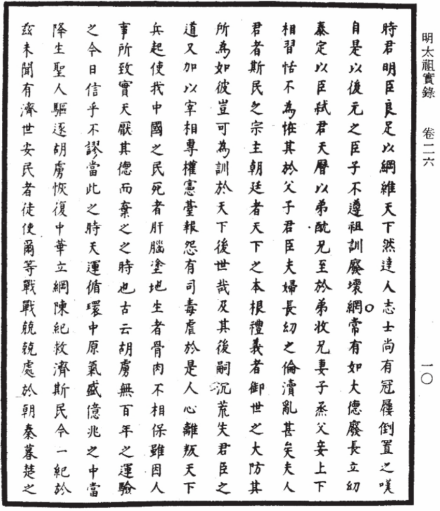 明太祖實錄　卷二六　一〇
時君明臣良足以綱維天下然達人志士尚有冠屨倒置之嘆
自是以後元之臣子不遵祖訓廢壞綱常有如大德廢長立幼
泰定以臣弑君天曆以弟酖兄至於弟收兄妻子烝父妾上下
相習恬不為恠其於父子君臣夫婦長幼之倫瀆亂甚矣夫人
君者斯民之宗主朝廷者天下之本根禮義者御世之大防其
所為如彼豈可為訓於天下後世哉及其後嗣沉荒失君臣之
道又加以宰相專權憲臺報怨有司毒虐於是人心離叛天下
兵起使我中國之民死者肝腦塗地生者骨肉不相保雖因人
事所致實天厭其德而棄之之時也古云胡虜無百年之運驗
之今日信乎不謬當此之時天運循環中原氣盛億兆之中當
降生聖人驅逐胡虜恢復中華立綱陳紀救濟斯民今一紀於
茲未聞有濟世安民者徒使爾等戰戰兢兢處於朝秦暮楚之